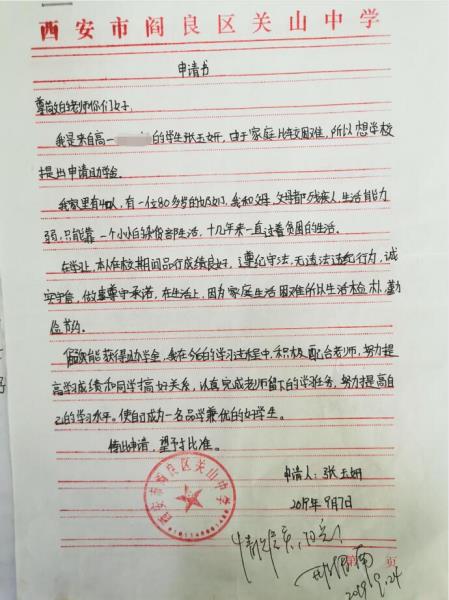 西安市阎良区关山中学
申请书
尊敬的老师你们好:
我是来自高一 的学生张玉妍,由于家庭比较困难,所以想学校
提出申请助学金。
我家里有4口人,有一位80多岁的奶奶,我和父母,父母都残疾人,生活能力
弱,只能靠一个小小的 部生活,十几年来一直过着贫困的生活。
在学习上,本人在校期间品行成绩良好,遵纪守法,无违法违纪行为,诚
实守信,做事遵守承诺,在生活上,因为家庭生活困难所以生活检朴,勤
俭节约。
能获得助学金,我在今后的学习过程中,积极配合老师,努力提
高学习成绩和同学搞好关系,认真完成老师留下的学习任务,努力提高自
己的学习水平。使自己成为一名品学兼优的好学生。
特此申请,望予批准。
申请人:张玉妍
2019年9月7日
西安市阎良区关山中学
情况
第 页
2019.9.24